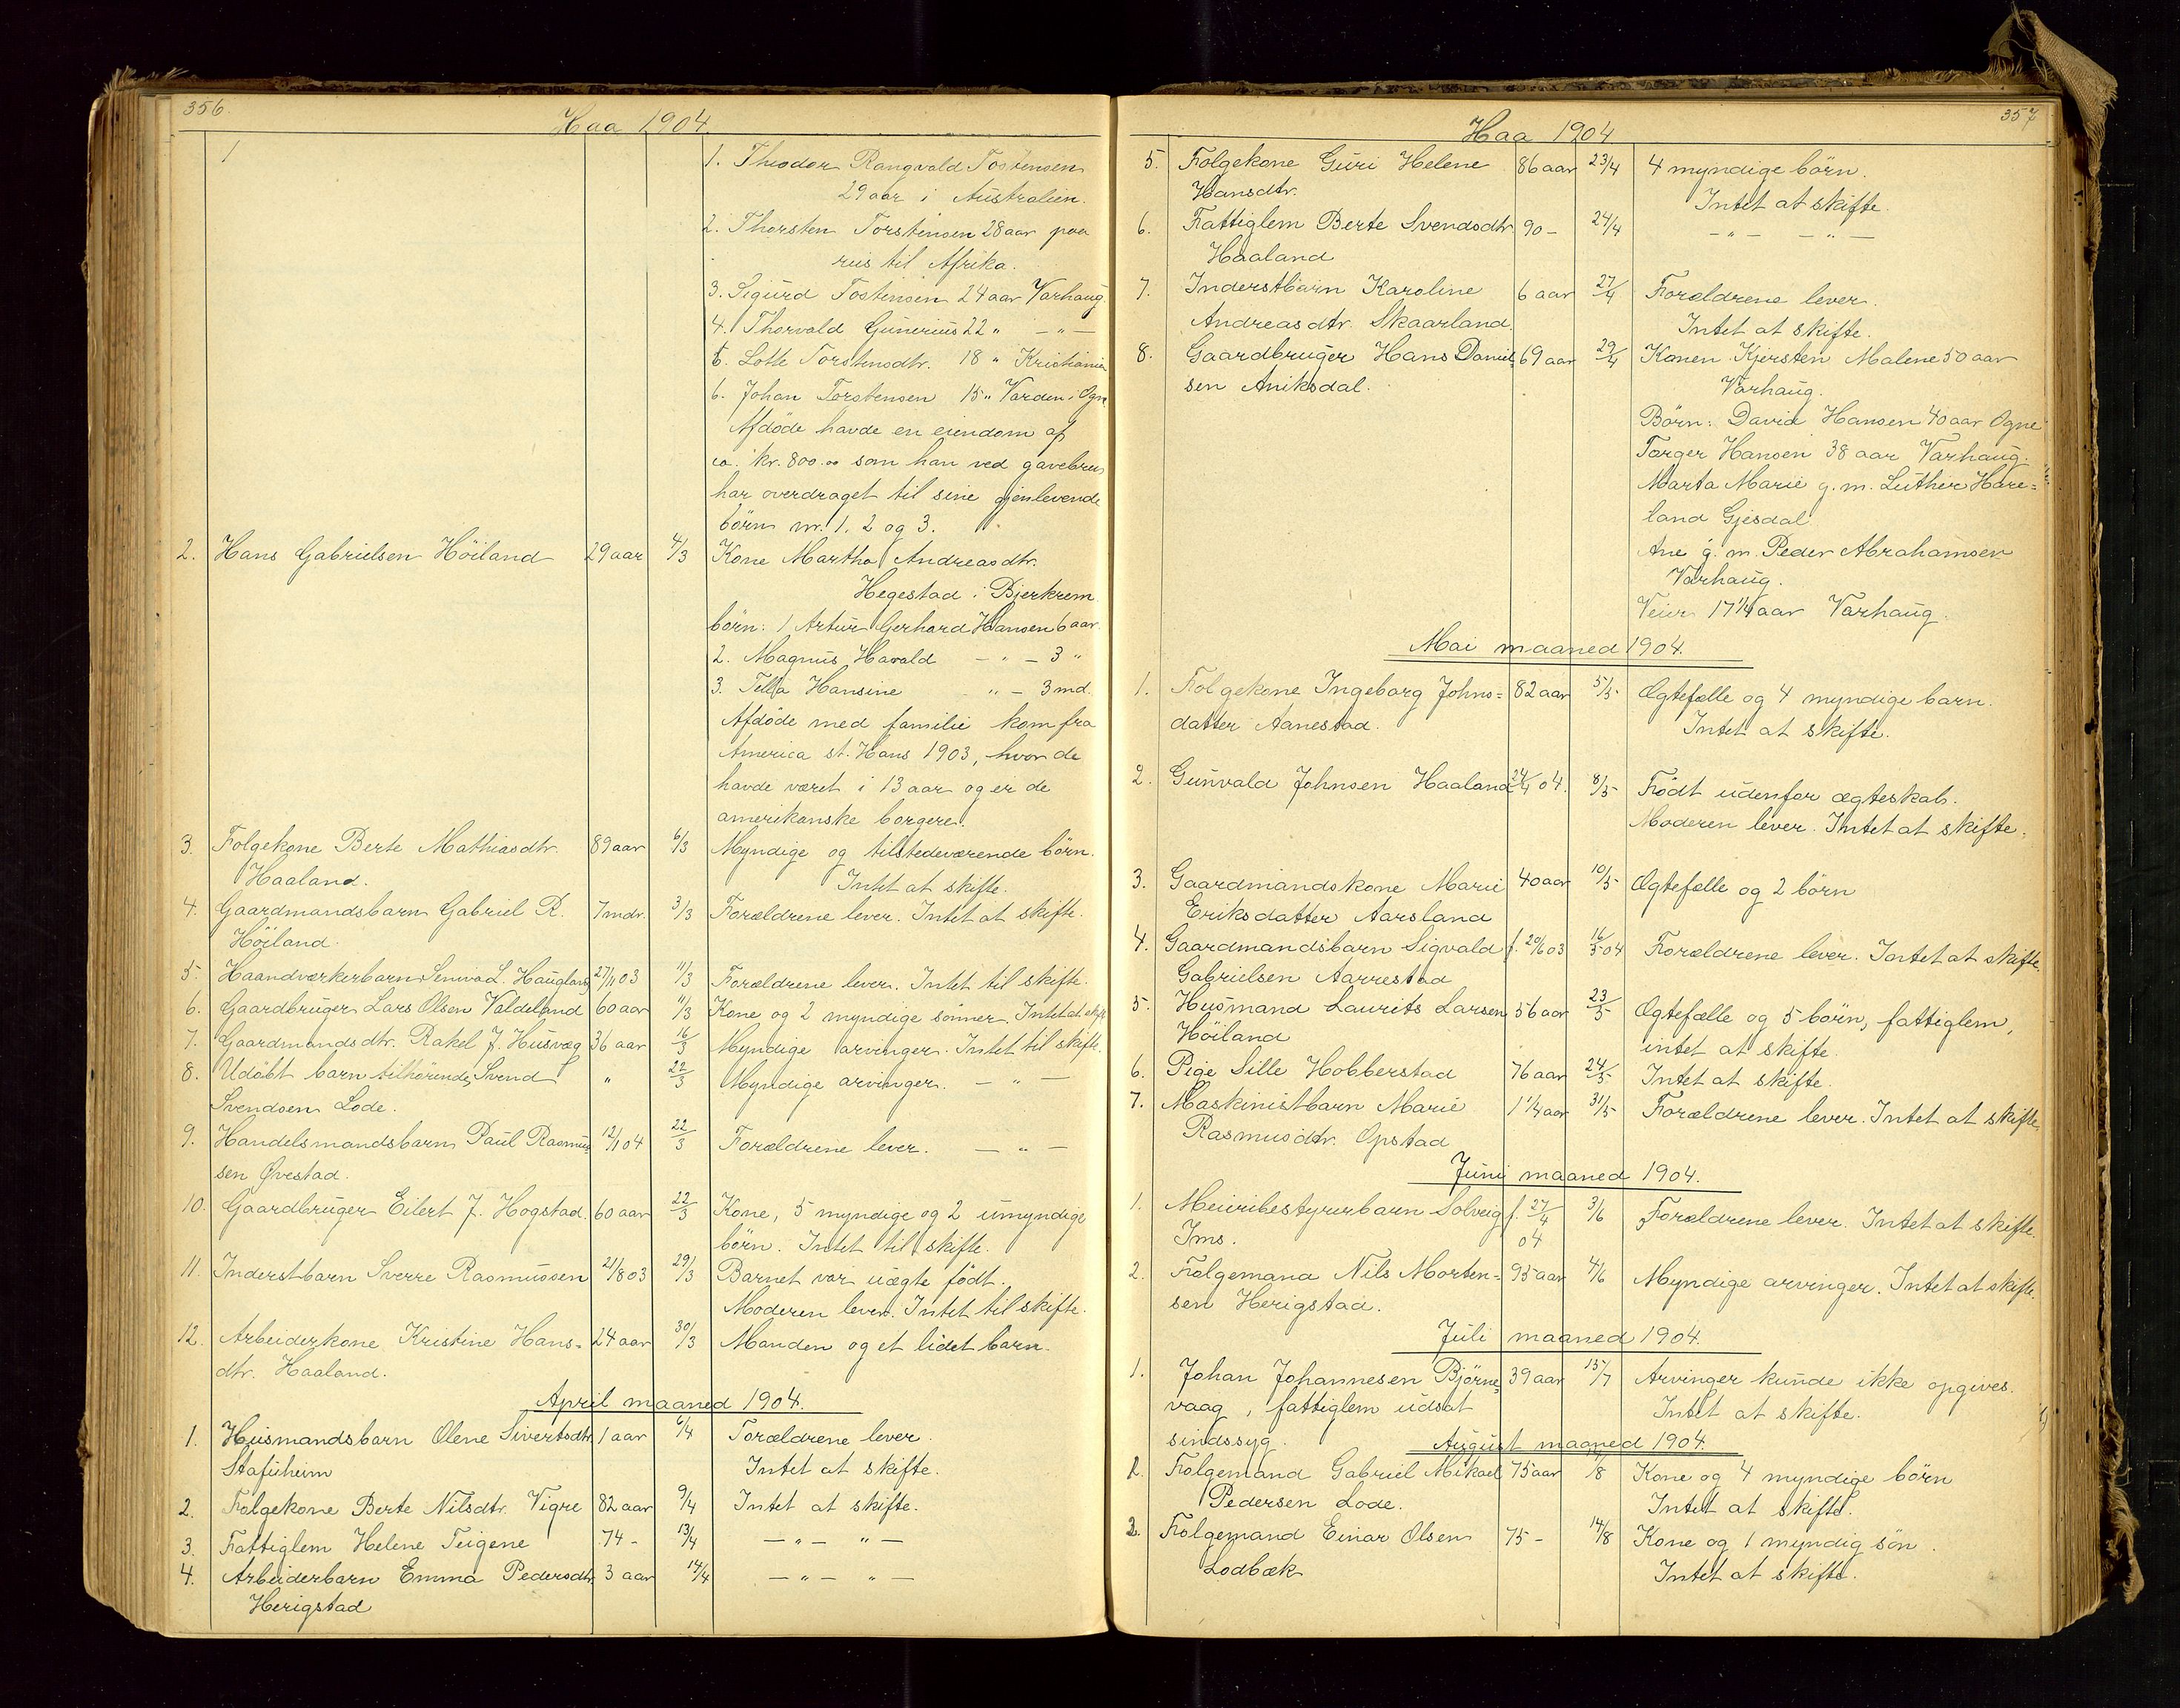 356.
Haa 1904.
1
1. Theodor Rangvald Tostensen
29 aar i Australien.
2. Thorsten Torstensen 28 aar paa
reis til Afrika.
3. Sigurd Tostensen 24 aar Varhaug
4. Thorvald Gunerius 22 " — " —
5. Lotte Torstensdtr. 18 " Kristiania
6. Johan Torstensen 15 " Varden i Ogne
Afdöde havde en eiendom af
ca. kr. 800.00 som han ved gavebrev
har overdraget til sine gjenlevende
börn nr. 1. 2 og 3.
2. Hans Gabrielsen Höiland 29 aar 4/3 Kone Martha Andreasdtr.
Hegestad i Bjerkrem.
börn: 1 Artur Gerhard Hansen 6 aar.
2. Magnus Harald — " — 3 "
3. Tella Hansine " — 3 md.
Afdöde med familie kom fra
America st. Hans 1903, hvor de
havde været i 13 aar og er de
amerikanske borgere.
3. Folgekone Berte Mathiasdtr. 89 aar 6/3 Myndige og tilstedeværende börn.
Haaland. Intet at skifte.
4. Gaardmandsbarn Gabriel R. 7 mdr. 3/3 Forældrene lever. Intet at skifte.
Höiland.
5. Haandværkerbarn L. Haugland 27/11 03 11/3 Forældrene lever. Intet til skifte.
6. Gaardbruger Lars Olsen Valdeland 60 aar 11/3 Kone og 2 myndige sönner. Intet at skifte
7. Gaardmandsdtr. Rakel J. Husvæg 36 aar 16/3 Myndige arvinger. Intet til skifte.
8. Udöbt barn tilhörende Svend " 22/3 Myndige arvinger. — " —
Svendsen Lode.
9. Handelsmandsbarn Paul Rasmus= 12/1 04 22/3 Forældrene lever. — " —
sen Øvestad.
10. Gaardbruger Eilert J. Hogstad. 60 aar 22/3 Kone, 5 myndige og 2 umyndige
börn. Intet til skifte.
11. Inderstbarn Sverre Rasmussen 21/8 03 29/3 Barnet var uægte födt.
Moderen lever. Intet til skifte.
12. Arbeiderkone Kristine Hans- 24 aar 30/3 Manden og et lidet barn.
dtr. Haaland.
April maaned 1904.
1. Husmandsbarn Olene Sivertsdtr. 1 aar 6/4 Forældrene lever.
Stafuheim Intet at skifte.
2. Folgekone Berte Nilsdtr. Vigre 82 aar 9/4 Intet at skifte.
3. Fattiglem Helene Teigene 74 - 13/4 — " — " —
4. Arbeiderbarn Emma Pedersdtr. 3 aar 14/4 — " — " —
Herigstad
357
Haa 1904
5. Folgekone Guri Helene 86 aar 23/4 4 myndige börn.
Hansdtr. Intet at skifte.
6. Fattiglem Berte Svendsdtr. 90 - 24/4 — " — — " —
Haaland
7. Inderstbarn Karoline 6 aar 27/4 Forældrene lever.
Andreasdtr. Skaarland. Intet at skifte.
8. Gaardbruger Hans Daniel= 69 aar 29/4 Konen Kjersten Malene 50 aar
sen Aniksdal. Varhaug.
Börn: David Hansen 40 aar Ogne
Torger Hansen 38 aar Varhaug.
Marta Marie g. m. Luther Hare=
land Gjesdal
Ane g. m. Peder Abrahamsen
Varhaug.
17 1/4 aar Varhaug.
Mai maaned 1904.
1. Folgekone Ingeborg Johns= 82 aar 5/5 Ægtefælle og 4 myndige barn.
datter Aanestad. Intet at skifte.
2. Gunvald Johnsen Haaland 24/4 04. 8/5 Födt udenfor ægteskab.
Moderen lever. Intet at skifte.
3. Gaardmandskone Marie 40 aar 10/5 Ægtefælle og 2 börn
Eriksdatter Aarsland
4. Gaardmandsbarn Sigvald f. 20/6 03 16/5 04 Forældrene lever. Intet at skifte.
Gabrielsen Aarrestad
5. Husmand Laurits Larsen 56 aar 23/5 Ægtefælle og 5 börn, fattiglem,
Höiland intet at skifte.
6. Pige Sille Hobberstad 76 aar 24/5 Intet at skifte.
7. Maskinistbarn Marie 1 1/4 aar 31/5 Forældrene lever. Intet at skifte
Rasmusdtr. Opstad
Juni maaned 1904.
1. Meieribestyrerbarn Solveig f. 27/4 3/6 Forældrene lever. Intet at skifte.
Ims. 04
2. Folgemand Nils Morten= 95 aar 4/6 Myndige arvinger. Intet at skifte.
sen Herigstad.
Juli maaned 1904.
1. Johan Johannesen Björne= 39 aar 15/7 Arvinger kunde ikke opgives.
vaag, fattiglem udsat Intet at skifte.
sindssyg.
August maaned 1904.
1. Folgemand Gabriel Mikael 75 aar 1/8 Kone og 4 myndige börn
Pedersen Lode. Intet at skifte.
2. Folgemand Einar Olsen 75 - 14/8 Kone og 1 myndig sön.
Lodbæk Intet at skifte.